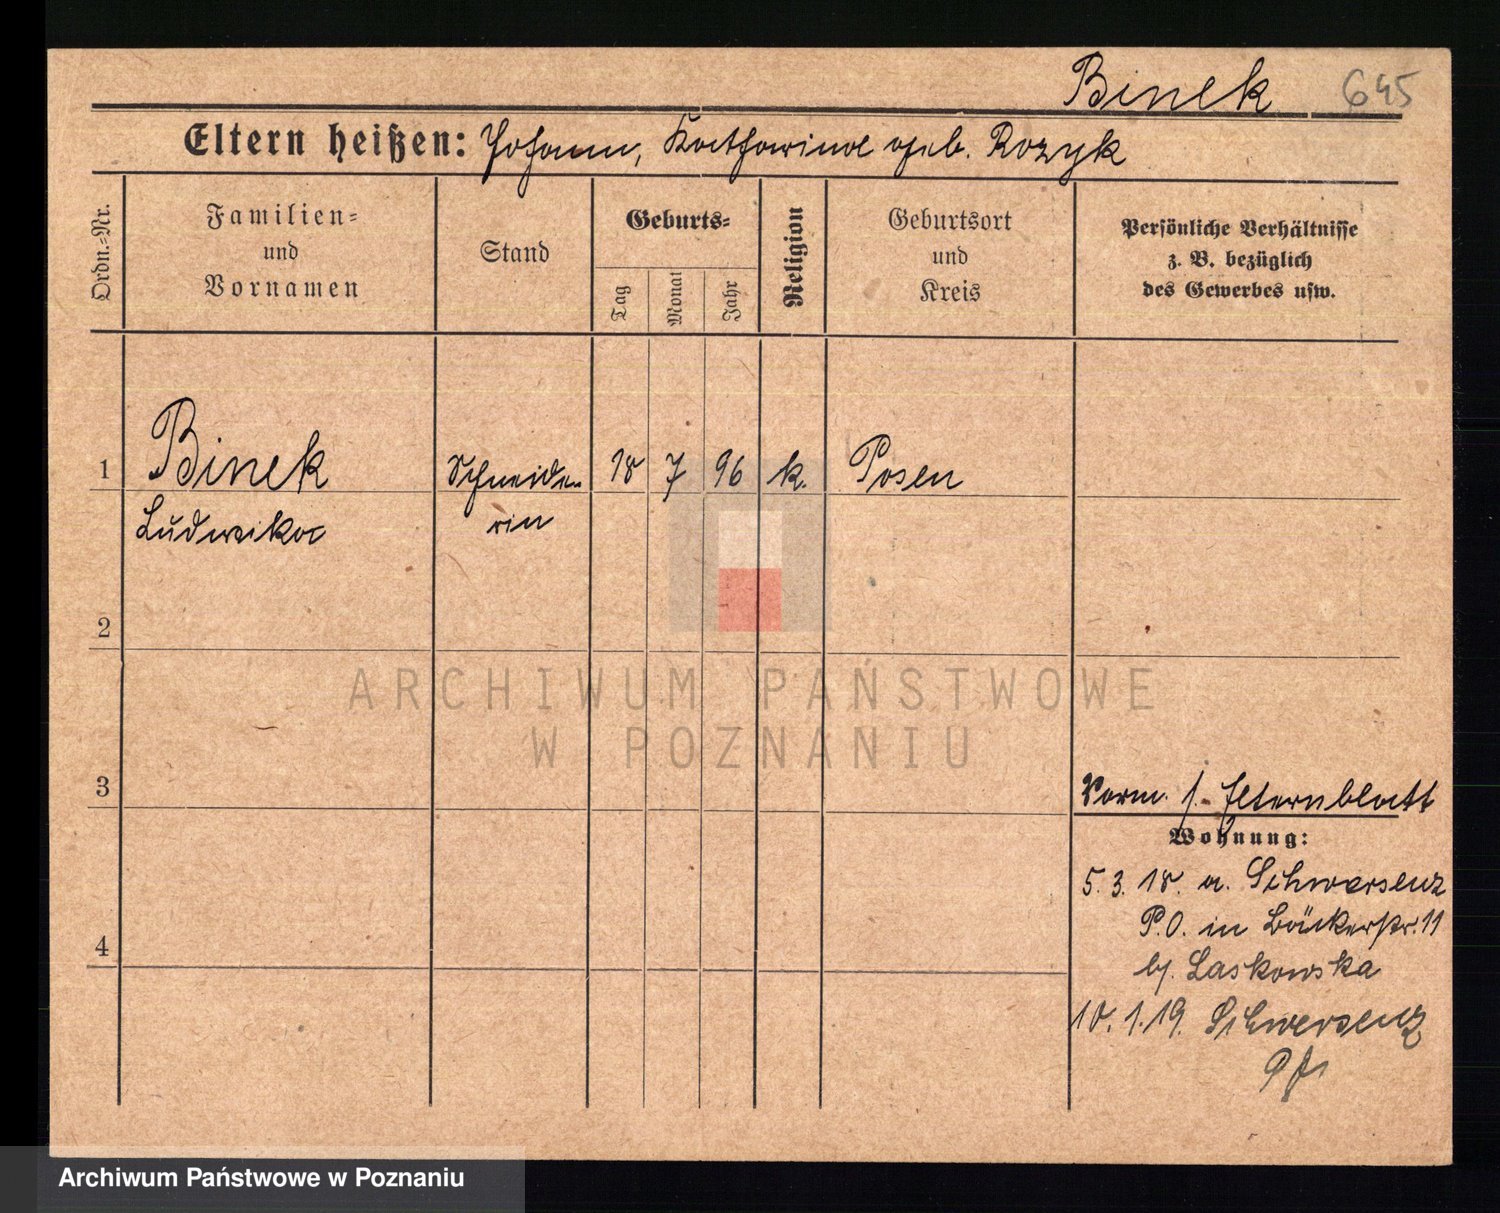 Binek 645
Eltern heißen: Johann, Katharina geb. Rozyk
Ordn.=Nr.
Familien=
und
Vornamen
Stand
Geburts=
Tag
Monat
Jahr
Religion
Geburtsort
und
Kreis
Persönliche Verhältnisse
z. B. bezüglich
des Gewerbes usw.
1 Binek Schneide= 18 7 96 k. Posen
Ludwika rin
2
3
Vorm. s. Elternblatt
Wohnung:
5. 3. 18. a. Schwersenz
P.O. in Bäckerstr. 11
4
bj. Laskowska
10. 1. 19. Schwersenz
ARCHIWUM PAŃSTWOWE
W POZNANIU
Archiwum Państwowe w Poznaniu